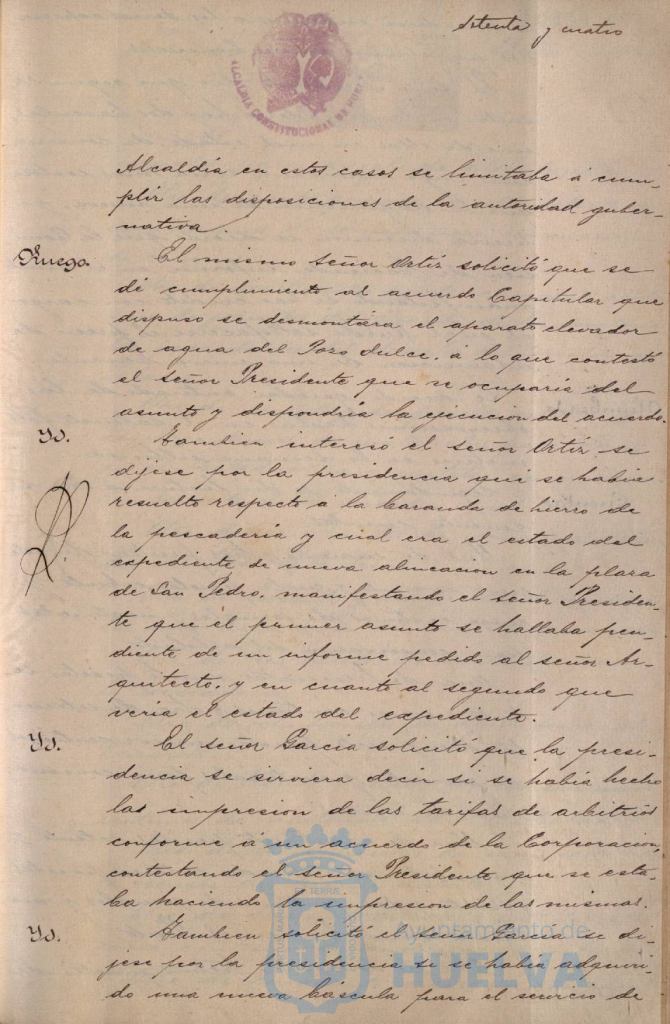 Setenta y cuatro
ALCALDÍA CONSTITUCIONAL DE HUEL
Alcaldía en estos casos se limitaba á cum-
plir las disposiciones de la autoridad guber-
nativa.
Ruego. El mismo señor Ortíz solicitó que se
dé cumplimiento al acuerdo Capitular que
dispuso se desmontára el aparato elevador
de agua del Pozo dulce, á lo que contestó
el señor Presidente que se ocuparia del
asunto y dispondría la ejecucion del acuerdo.
Yd. Tambien interesó el señor Ortíz se
dijese por la presidencia qué se habia
resuelto respecto á la baranda de hierro de
la pescadería y cual era el estado del
expediente de nueva alineacion en la plaza
de San Pedro, manifestando el señor Presiden-
te que el primer asunto se hallaba pen-
diente de un informe pedido al señor Ar-
quitecto, y en cuanto al segundo que
vería el estado del expediente.
Yd. El señor García solicitó que la presi-
dencia se sirviera decir si se había hecho
las impresion de las tarifas de arbitrios
conforme á un acuerdo de la Corporacion,
contestando el señor Presidente que se esta-
ba haciendo la impresion de las mismas.
Yd. Tambien solicitó el señor García se di-
jese por la presidencia si se habia adquiri-
do una nueva báscula para el servicio de
Ayuntamiento de
HUELVA